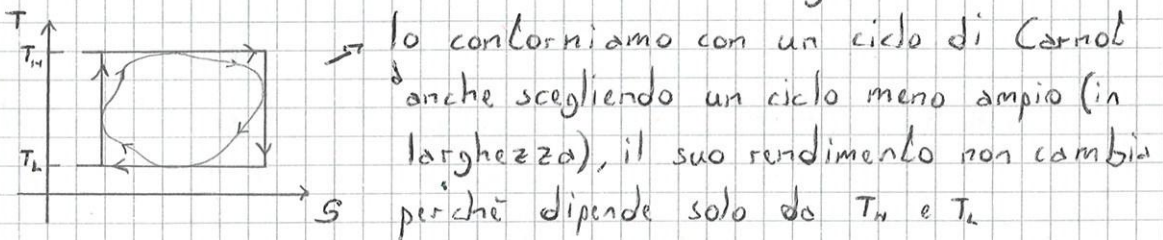 T
T_H
T_L
S
lo contorniamo con un ciclo di Carnot
anche scegliendo un ciclo meno ampio (in
larghezza), il suo rendimento non cambia
perchè dipende solo da T_H e T_L